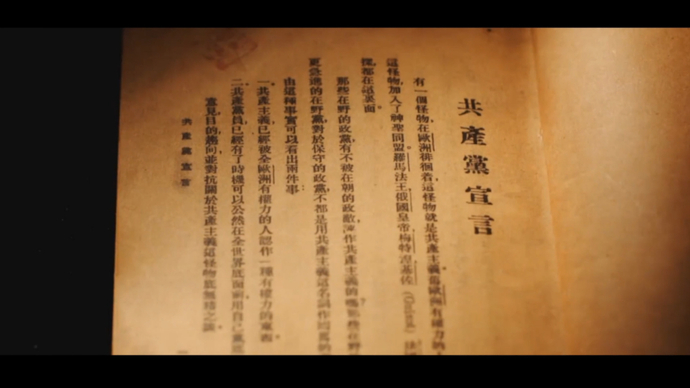 共產黨宣言
有一個怪物，在歐洲徘徊着，這怪物就是共產主義。舊歐洲有權力的人
這怪物，加入了神聖同盟。羅馬法王，俄國皇帝，梅特涅，基佐
都在這裏面
那些在野的政黨，有不被在朝的政敵，作共產主義的嗎？那些在野
更急進的在野黨，對於保守的政黨，不都是用共產主義這名詞作回罵的
由這種事實可以看出兩件事：
一、共產主義，已經被全歐洲有權力的人認作一種有權力的東西。
二、共產黨員，已經有了時機可以公然在全世界底面前，用自己黨
意見目的趨向，並對抗關於共產主義這怪物底無稽之談。
共產黨宣言